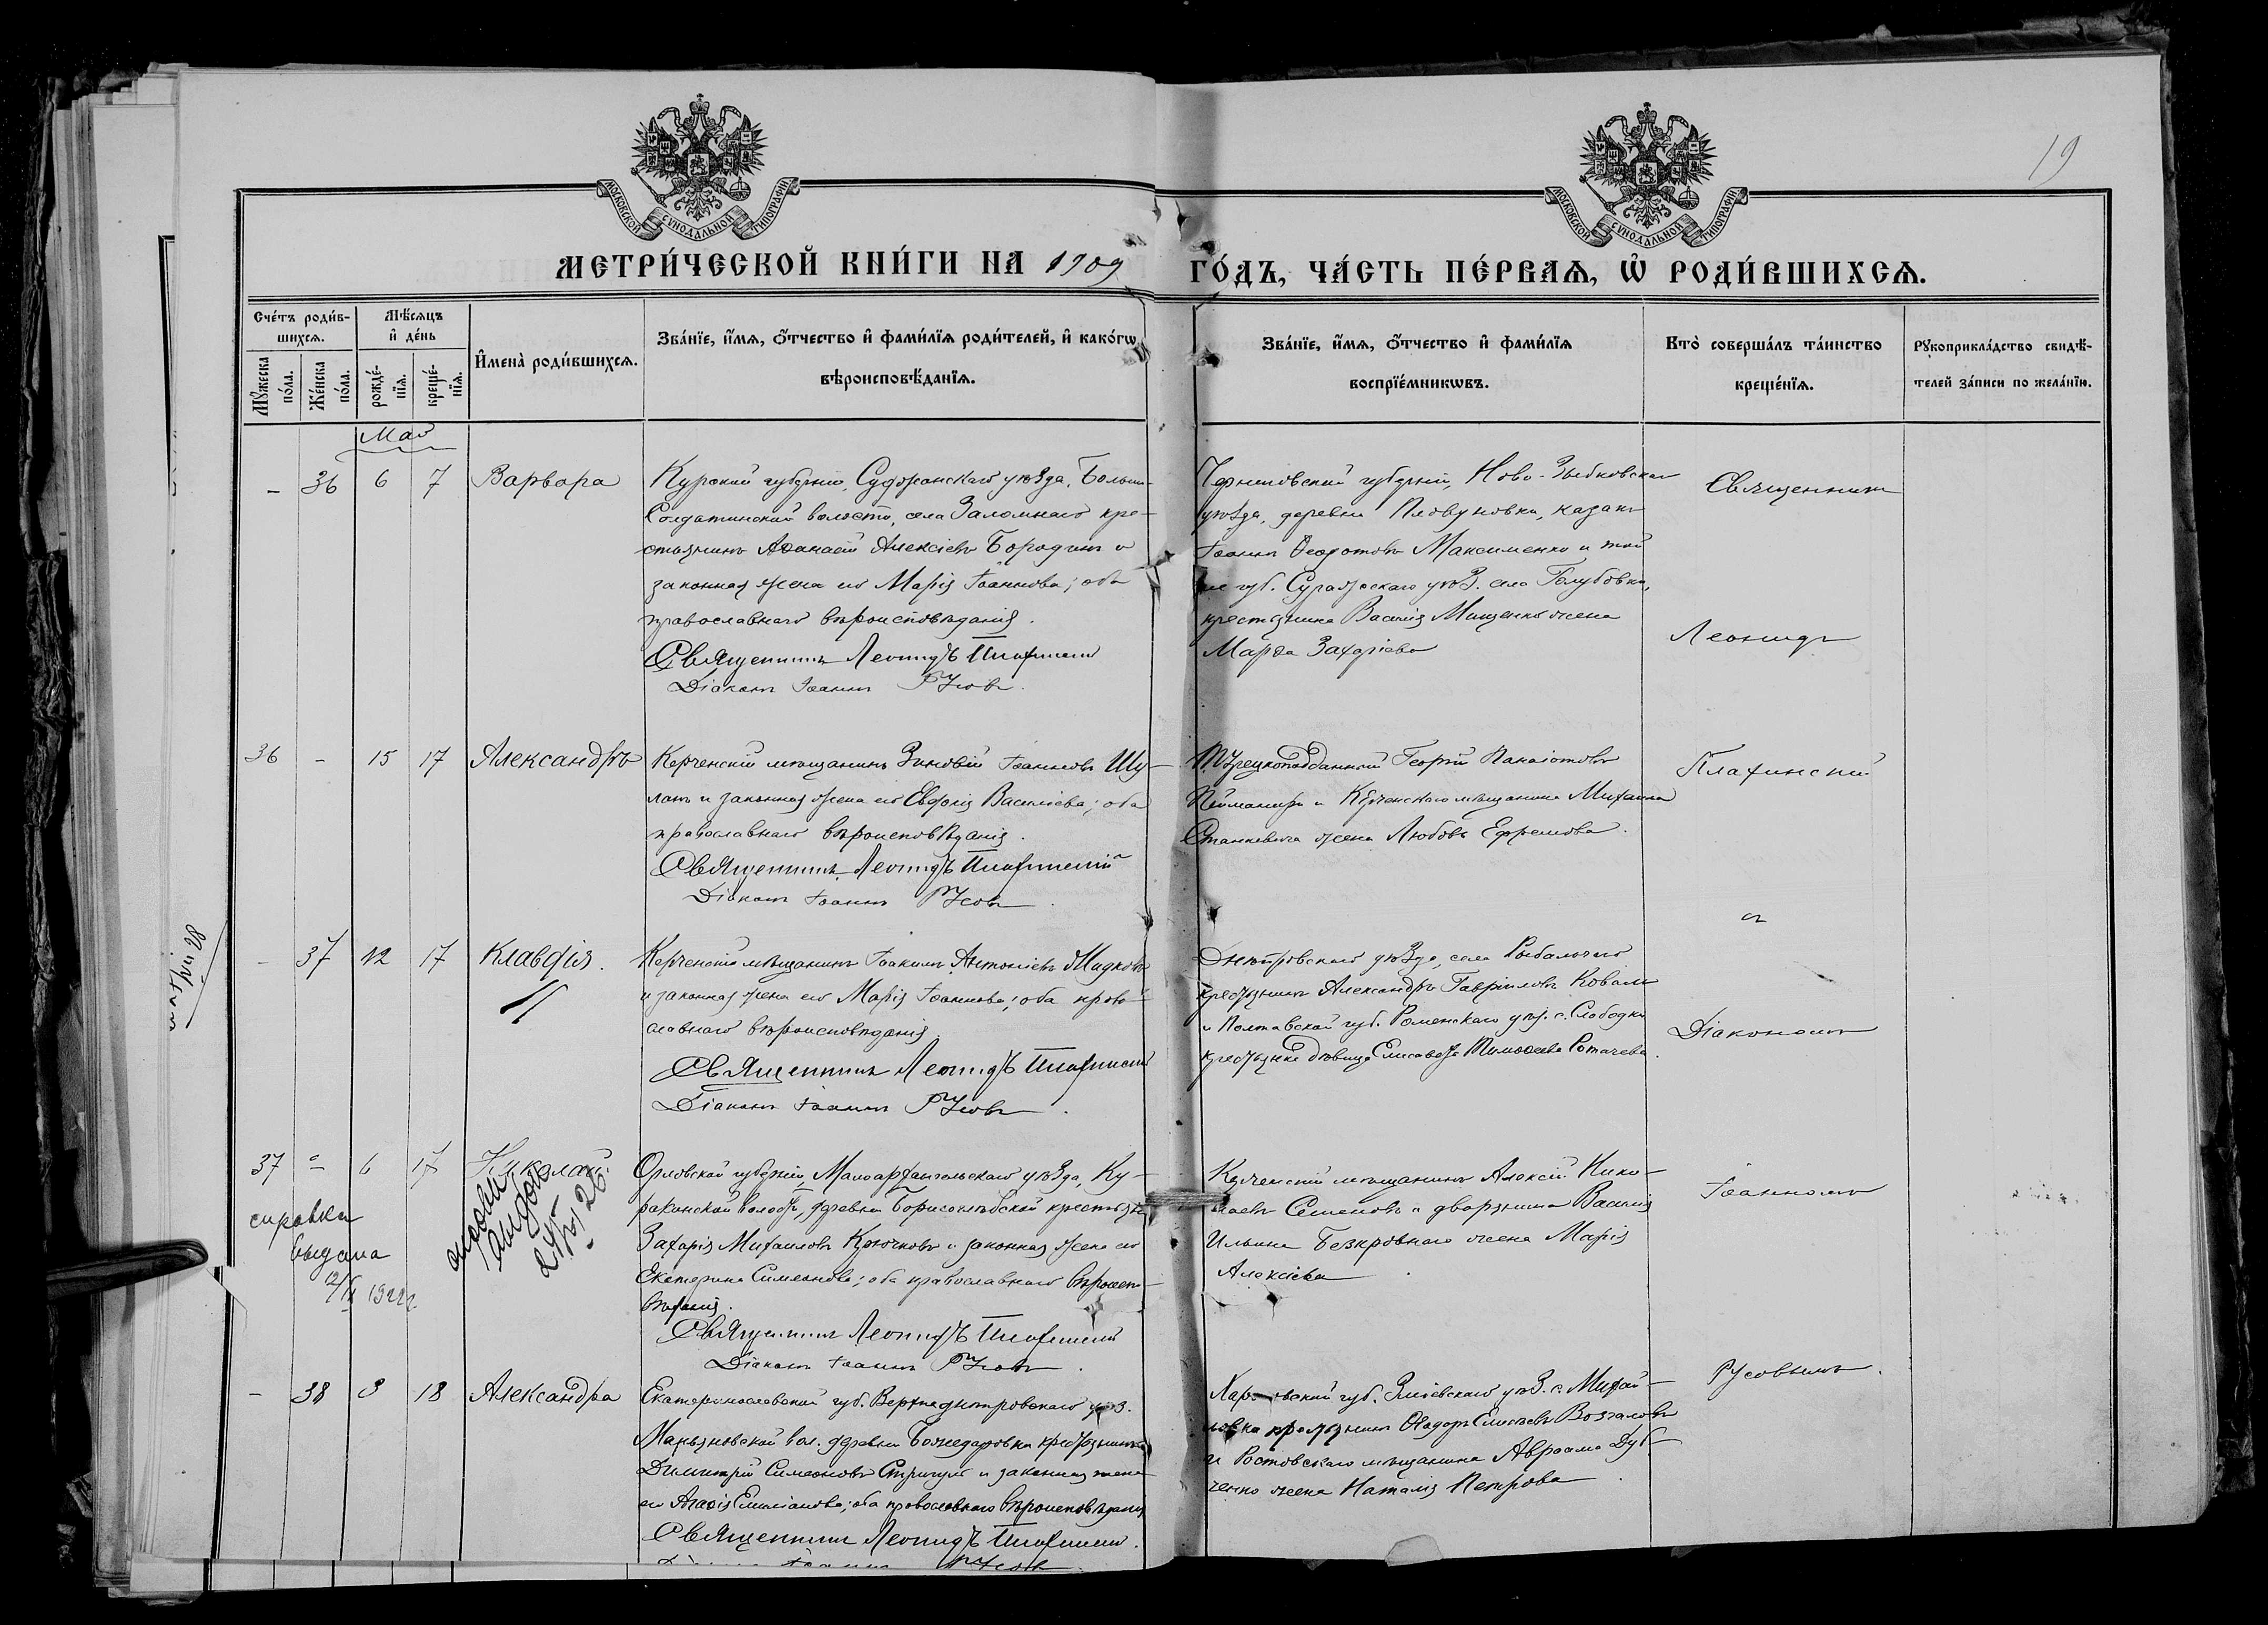 19
МОСКОВСКОЙ СУНОДАЛЬНОЙ ТИПОГРАФІИ
МОСКОВСКОЙ СУНОДАЛЬНОЙ ТИПОГРАФІИ
МЕТРИ́ЧЕСКОЙ КНИ́ГИ НА 1909 ГО́ДЪ, ЧА́СТЬ ПЕ́РВАѦ, Ѡ҆ РОДИ́ВШИХСѦ.
Сче́тъ роди́в-
шихсѧ.
Мꙋ́жеска по́ла.
Же́нска по́ла.
Мѣ́сѧцъ
и҆ де́нь
рожде́-
нїѧ.
креще́-
нїѧ.
И҆мена̀ роди́вшихсѧ.
Зва́нїе, и҆́мѧ, ѻ҆́тчество и҆ фами́лїѧ роди́телей, и҆ како́гѡ
вѣроисповѣ́данїѧ.
Зва́нїе, и҆́мѧ, ѻ҆́тчество и҆ фами́лїѧ
воспрїе́мникѡвъ.
Кто̀ соверша́лъ та́инство
креще́нїѧ.
Рꙋкоприкла́дство свидѣ́-
телей за́писи по жела́нїю.
Май
– 36 6 7 Варвара
Курской губерніи, Суджанскаго уѣзда, Больше-
Солдатинской волости, села Заломнаго кре-
стьянинъ Аѳанасій Алексіевъ Бородинъ и
законная жена его Марія Іоаннова; оба
православнаго вѣроисповѣданія.
Священникъ Леонидъ Плахинскій
Діаконъ Іоаннъ Русовъ.
Черниговской губерніи, Ново-Зыбковскаго
уѣзда, деревни казакъ
Іоаннъ Ѳеодотовъ Максименко и той
же губ. Суражскаго уѣз. села Голубовки,
крестьянина Василія Мищенко жена
Марѳа Захаріева
Священникъ
Леонидъ
36 – 15 17 Александръ
Керченскій мѣщанинъ Зиновій Іоанновъ Шу-
и законная жена его Евдокія Василіева; оба
православнаго вѣроисповѣданія.
Священникъ Леонидъ Плахинскій
Діаконъ Іоаннъ Русовъ
Турецкоподданный Георгій Панаіотовъ
и Керченскаго мѣщанина Михаила
Станкевича жена Любовь Ефремова.
Плахинскій
съ
– 37 12 17 Клавдія.
Керченскій мѣщанинъ Іоакимъ Антоніевъ
и законная жена его Марія Іоаннова; оба право-
славнаго вѣроисповѣданія.
Священникъ Леонидъ Плахинскій
Діаконъ Іоаннъ Русовъ.
Днѣпровскаго уѣзда, села Рыбальчаго
крестьянинъ Александръ Гавріиловъ Коваль
и Полтавской губ. Роменскаго уѣз. с. Слободки
крестьянка дѣвица Елисавета Тимоѳеева
Діакономъ
37 – 6 17 Николай.
справка
выдана
1922 г.
Орловской губерніи, Малоархангельскаго уѣзда, Ку-
ракинской волости, деревни Борисоглѣбской крестьянинъ
Захарія Михаиловъ Крючковъ и законная жена его
Екатерина Симеонова; оба православнаго вѣроиспо-
вѣданія.
Священникъ Леонидъ Плахинскій
Діаконъ Іоаннъ Русовъ.
Керченскій мѣщанинъ Алексій Нико-
лаевъ Семеновъ и дворянина Василія
Ильина Безкровнаго жена Марія
Алексіева
Іоанномъ
– 38 3 18 Александра
Екатеринославской губ. Верхнеднѣпровскаго уѣз.
вол. деревни Божедаровки крестьянинъ
Димитрій Симеоновъ и законная жена
его Агаѳія Емиліанова; оба православнаго вѣроисповѣданія
Священникъ Леонидъ Плахинскій.
Діаконъ Іоаннъ Русовъ.
Харьковской губ. Зміевскаго уѣз. с. Михай-
ловки крестьянинъ Ѳеодоръ
и Ростовскаго мѣщанина Авраама Дуб-
ченко жена Наталія Петрова.
Русовымъ.